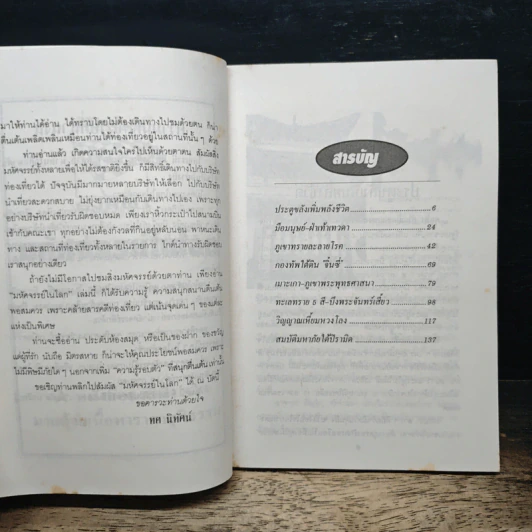 มาให้ท่านได้อ่าน ได้ทราบโดยไม่ต้องเดินทางไปชมด้วยตน ก็น่า
ตื่นเต้นเพลิดเพลินเหมือนท่านได้ท่องเที่ยวอยู่ในสถานที่นั้น ๆ ด้วย
ท่านอ่านแล้ว เกิดความสนใจใคร่ไปเห็นด้วยตาตน สัมผัสสิ่ง
มหัศจรรย์ทั้งหลายเพื่อให้ได้รสชาติดียิ่งขึ้น ก็มีสิทธิ์เดินทางไปกับบริษัท
ท่องเที่ยวได้ ปัจจุบันมีมากมายหลายบริษัทให้เลือก ไปกับบริษัท
นำเที่ยวสะดวกสบาย ไม่ยุ่งยากเหมือนกับเดินทางไปเอง เพราะทุก
อย่างบริษัทนำเที่ยวรับผิดชอบหมด เพียงเราหิ้วกระเป๋าไปสนามบิน
เข้ากับคณะเขา ทุกอย่างไม่ต้องกังวลที่กินอยู่หลับนอน พาหนะเดิน
ทาง และสถานที่ท่องเที่ยวทั้งหลายในรายการ ไกด์นำทางรับผิดชอบ
เราสนุกอย่างเดียว
ถ้ายังไม่มีโอกาสไปชมสิ่งมหัศจรรย์ด้วยตาท่าน เพียงอ่าน
"มหัศจรรย์ในโลก" เล่มนี้ ก็ได้รับความรู้ ความสนุกสนานตื่นเต้น
พอสมควร เพราะคล้ายสารคดีท่องเที่ยว แต่เน้นจุดเด่น ๆ ของแต่ละ
แห่งเป็นพิเศษ
ท่านจะซื้ออ่าน ประดับห้องสมุด หรือเป็นของฝาก ของขวัญ
แด่ผู้ที่รัก นับถือ มิตรสหาย ก็น่าจะให้คุณประโยชน์พอสมควร เพราะ
ไม่มีพิษมีภัยใด ๆ นอกจากเพิ่ม "ความรู้รอบตัว" ที่สนุกตื่นเต้นเท่านั้น
ขอเชิญท่านพลิกไปสัมผัส "มหัศจรรย์ในโลก" ได้ ณ บัดนี้
ขอคารวะท่านด้วยใจ
ทศ นิทัศน์
สารบัญ
ประตูขลังเพิ่มพลังชีวิต 6
มือมนุษย์-ฝ่าเท้าเทวดา 24
ภูเขาทรายละลายโรค 42
กองทัพใต้ดิน "จิ๋นซี" 69
เมาะเกา-ภูเขาพระพุทธศาสนา 79
ทะเลทราย 5 สี-บึงพระจันทร์เสี้ยว 98
วิญญาณเหี้ยมหวงโลง 117
สมบัติมหาภัยใต้ปิรามิด 137